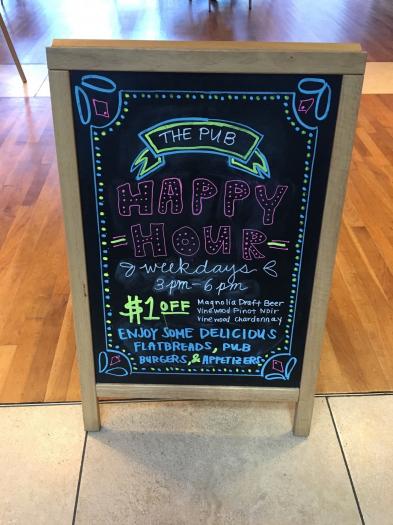 THE PUB
HAPPY
HOUR
weekdays
3pm-6pm
$1 OFF Magnolia Draft Beer
Vinewood Pinot Noir
Vinewood Chardonnay
ENJOY SOME DELICIOUS
FLATBREADS, PUB
BURGERS, & APPETIZERS